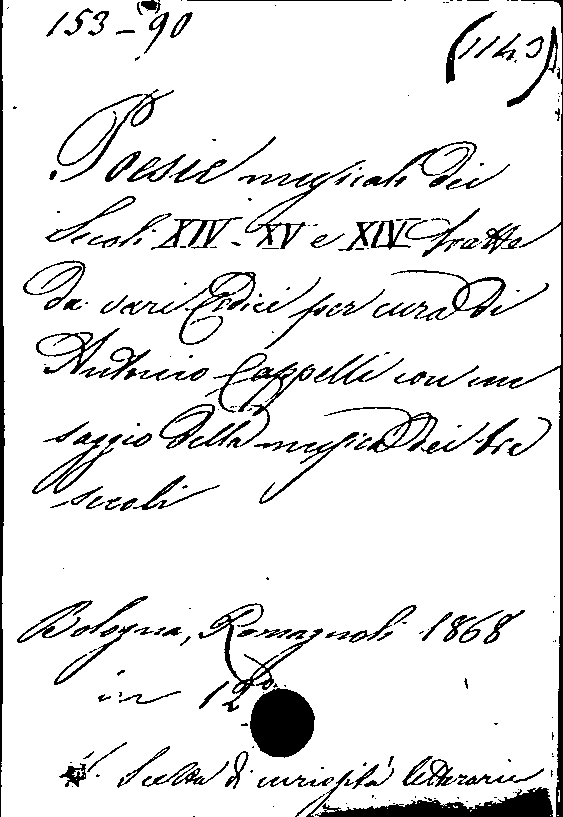 153-90
(1143)
Poesie musicali dei
Secoli XIV-XV e XIV tratte
da vari Codici per cura di
Antonio Cappelli con un
saggio della musica dei tre
secoli
Bologna, Romagnoli 1868
in 12º
Scelta di curiosità letterarie